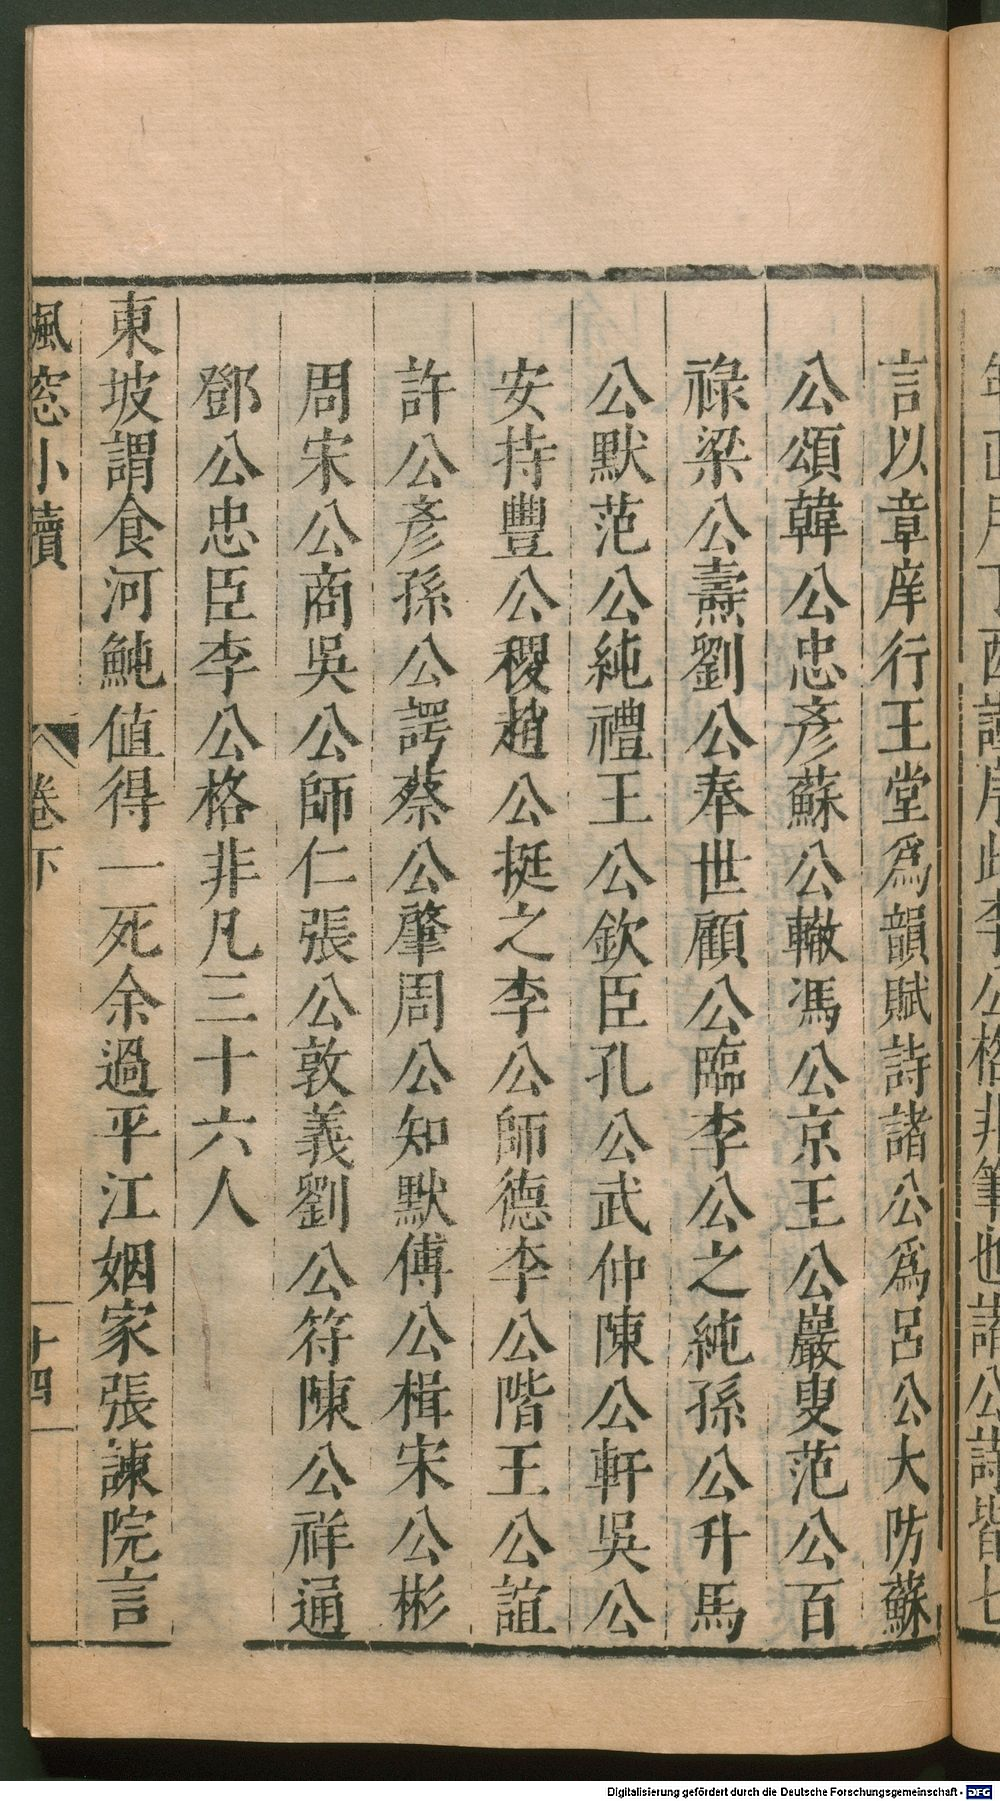 言以章庠行王堂爲韻賦詩諸公爲呂公大防蘇
公頌韓公忠彥蘇公轍馮公京王公巖叟范公百
祿梁公燾劉公奉世顧公臨李公之純孫公升馬
公默范公純禮王公欽臣孔公武仲陳公軒吳公
安持豐公稷趙公挺之李公師德李公階王公誼
許公彥孫公諤蔡公肇周公知默傅公楫宋公彬
周宋公商吳公師仁張公敦義劉公符陳公祥通
鄧公忠臣李公格非凡三十六人
東坡謂食河魨值得一死余過平江姻家張諫院言
楓窓小牘
卷下
十四
Digitalisierung gefördert durch die Deutsche Forschungsgemeinschaft - DFG